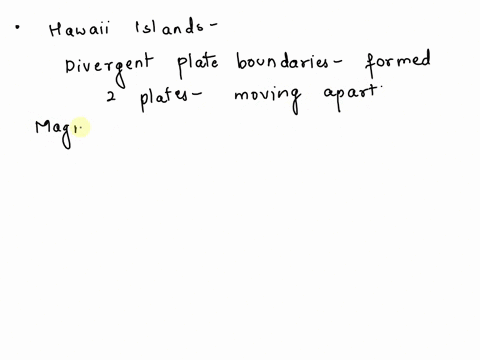 • Hawaii Islands-
Divergent plate boundaries- formed
2 plates- moving apart.
Mag